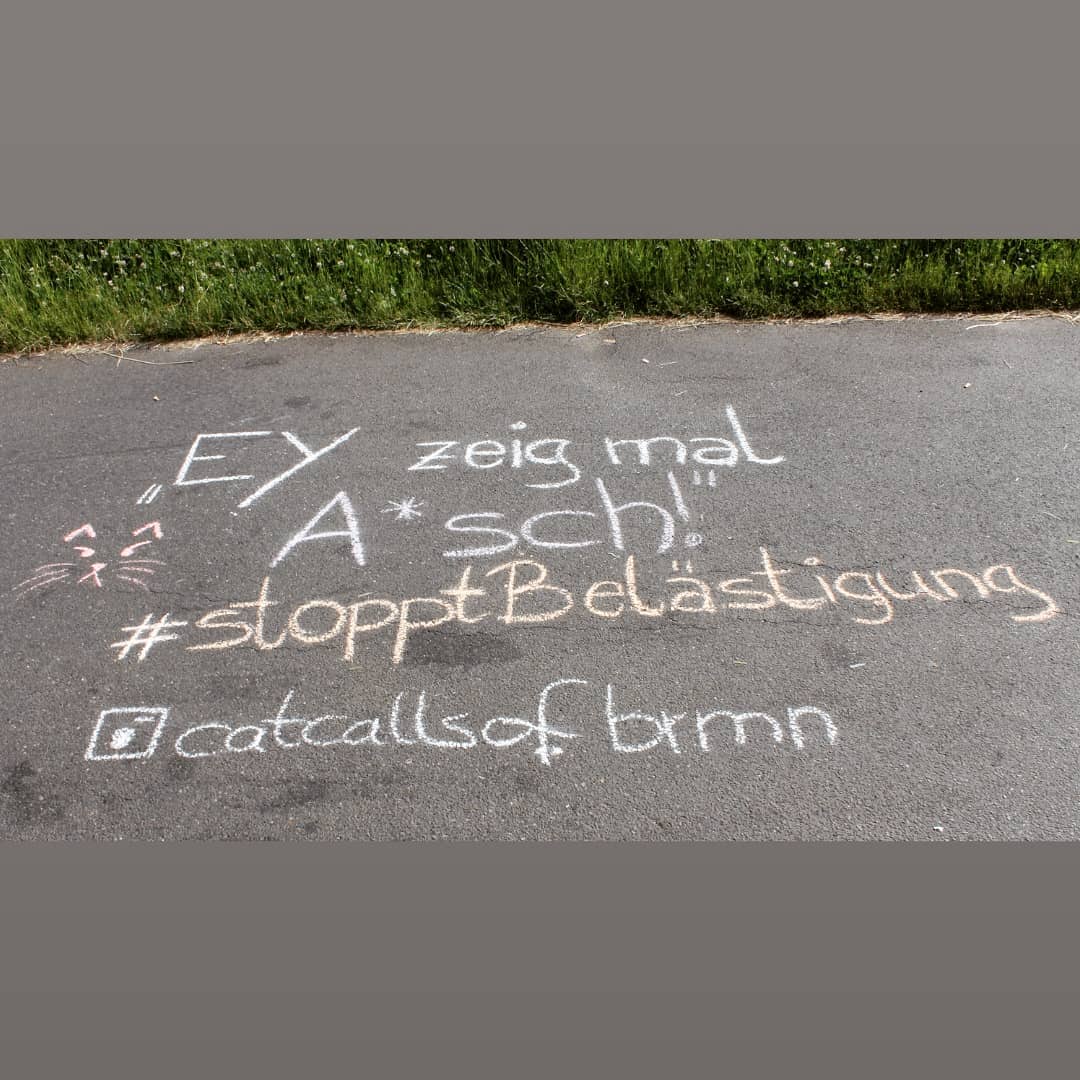 „EY zeig mal
A*sch!"
#stopptBelästigung
catcallsof brmn